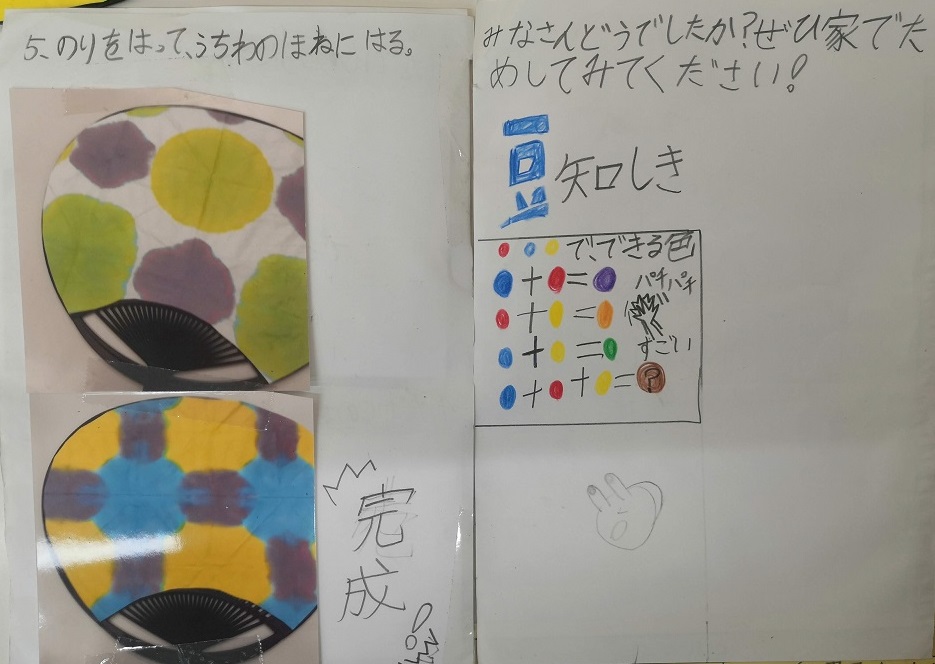 5、のりをはって、うちわのほねにはる。
完
成
みなさんどうでしたか?ぜひ家でた
めしてみてください!
豆知しき
で、できる色
+ =
パチパチ
+ =
+ =
すごい
+ + = ?